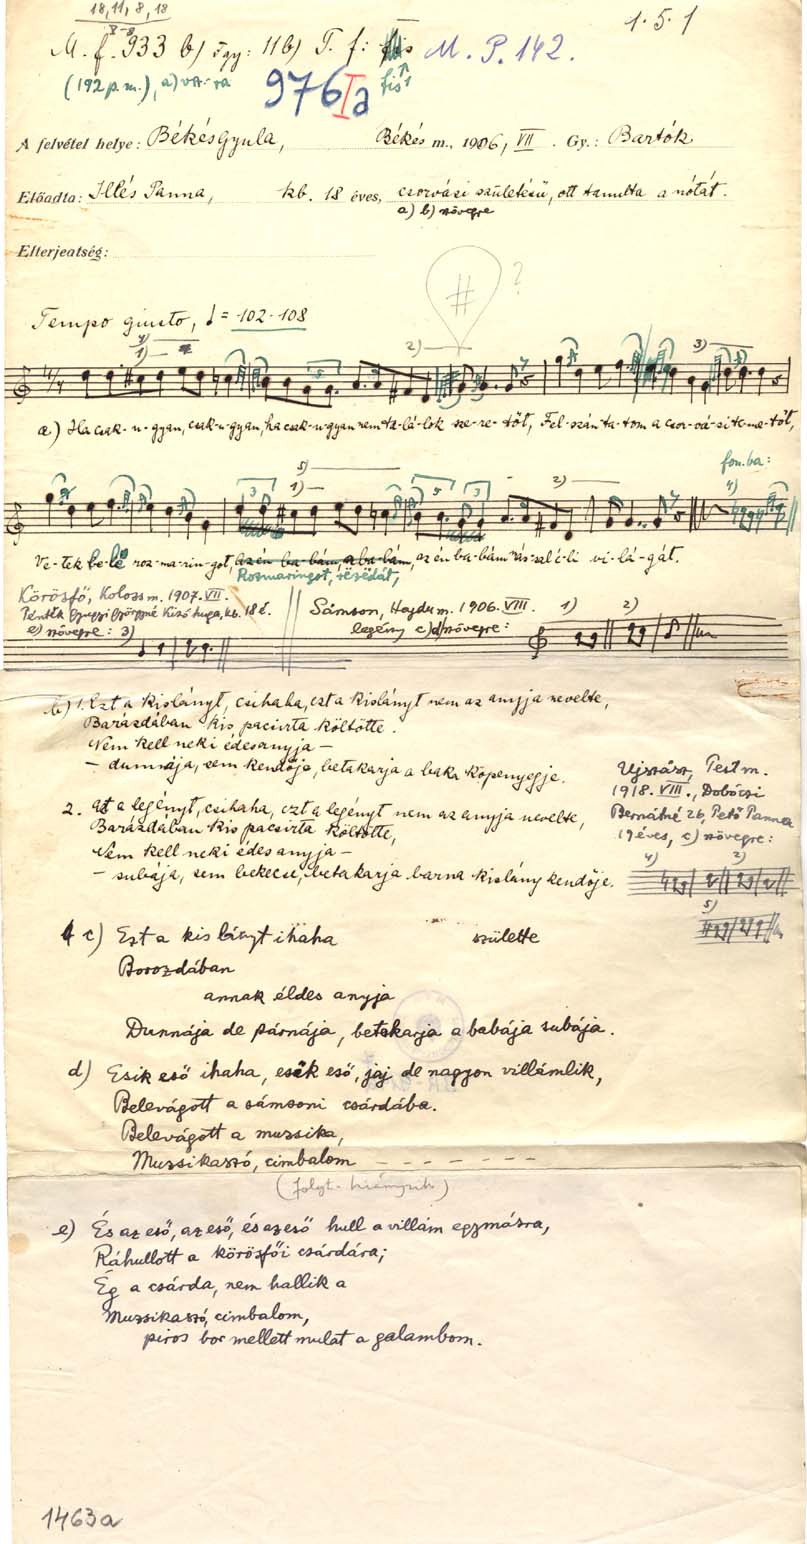 18, 11, 8, 18
1.5.1
M. f. 933 b) Egy: 11b) T. f: M. P. 142.
(192 p.m.), a) fis¹
976 I a
A felvétel helye: Békésgyula, Békés m., 1906, VII. Gy.: Bartók
Előadta: Illés Panna, kb. 18 éves, csorvási születésű, ott tanulta a nótát.
a) b) szövegre
Elterjedtség:
# ?
Tempo giusto, ♩= 102-108
1) 2) 3)
a.) Ha csak-u-gyan, csak-u-gyan, ha csak-u-gyan nem ta-lá-lok sze-re-tőt, Fel-szán-ta-tom a csor-vá-si te-me-tőt,
5) 1) 2) fon. ba: 4)
Ve-tek be-lé roz-ma-rin-got, az én ba-bám, a ba-bám, az én ba-bám rás-sal é-li vi-lá-gát.
Rozmaringot, rëzëdát,
Körösfő, Kolozs m. 1907. VII.
kb. 18 é.
e) szövegre: 3)
Sámson, Hajdu m. 1906. VIII. 1) 2)
legény c) d) szövegre:
b) 1. Ezt a kislányt, csihaha, ezt a kislányt nem az anyja nevelte,
Barázdában kis pacsirta költötte.
Nem kell neki édesanyja –
– dunnája, sem kendője, betakarja a baka köpenyegje.
2. Ezt a legényt, csihaha, ezt a legényt nem az anyja nevelte,
Barázdában kis pacsirta költötte,
Nem kell neki édesanyja –
– subája, sem bekecse, betakarja barna kislány kendője.
Ujszász, Pest m.
1918. VIII., Dobócsi
Bernátné 26, Pető Panna
19 éves, c) szövegre:
4) 2)
5)
c) Ezt a kis lányt ihaha születte
Borozdában
annak éldes anyja
Dunnája de párnája, betakarja a babája subája.
d) Esik eső ihaha, esik eső, jaj de nagyon villámlik,
Belevágott a sámsoni csárdába.
Belevágott a muzsika,
Muzsikaszó, cimbalom – – – – – – –
(folyt. hiányzik)
e) És az eső, az eső, és az eső hull a villám egymásra,
Ráhullott a körösfői csárdára;
Ég a csárda, nem hallik a
Muzsikaszó, cimbalom,
piros bor mellett mulat a galambom.
1463a